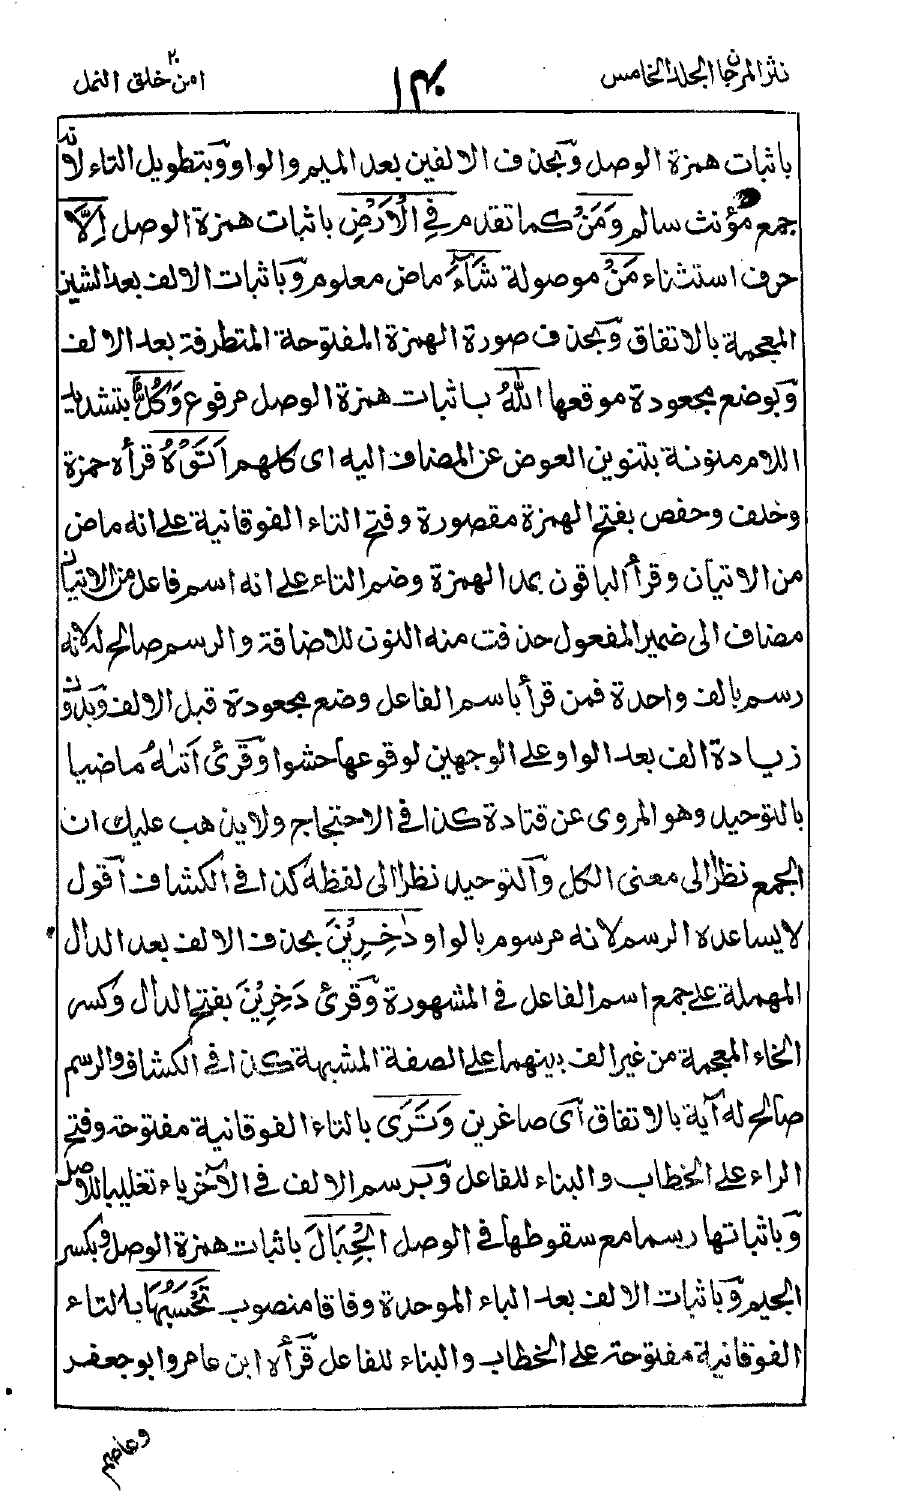 نثر المرجان الجلد الخامس
١٤٠
امن خلق ٢٠ النمل
باثبات همزة الوصل وبحذف الالفين بعد الميم والواو وبتطويل التاء لانه
جمع مؤنث سالم وَمَنْ كما تقدم فِي الْاَرْضِ باثبات همزة الوصل اِلَّا
حرف استثناء مَنْ موصولة شَآءَ ماض معلوم وباثبات الالف بعد الشين
المعجمة بالاتفاق وبحذف صورة الهمزة المفتوحة المتطرفة بعد الالف
وبوضع مجعودة موقعها اللهُ باثبات همزة الوصل مرفوع وَكُلٌّ بتشديد
اللام منونة بتنوين العوض عن المضاف اليه اى كلهم اَتَوْهُ قرأه حمزة
وخلف وحفص بفتح الهمزة مقصورة وفتح التاء الفوقانية على انه ماض
من الاتيان وقرأ الباقون بمد الهمزة وضم التاء على انه اسم فاعل من الاتيان
مضاف الى ضمير المفعول حذفت منه النون للاضافة والرسم صالح له لانه
رسم بالف واحدة فمن قرأ باسم الفاعل وضع مجعودة قبل الالف وبدون
زيادة الف بعد الواو على الوجهين لوقوعها حشوا وقرئ اَتٰهُ ماضيا
بالتوحيد وهو المروى عن قتادة كذا فى الاحتجاج ولا يذهب عليك ان
الجمع نظرا الى معنى الكل والتوحيد نظرا الى لفظه كذا فى الكشاف اقول
لا يساعده الرسم لانه مرسوم بالواو دٰخِرِيْنَ بحذف الالف بعد الدال
المهملة على جمع اسم الفاعل فى المشهورة وقرئ دَخِرِيْنَ بفتح الدال وكسر
الخاء المعجمة من غير الف بينهما على الصفة المشبهة كذا فى الكشاف والرسم
صالح له آية بالاتفاق اى صاغرين وَتَرَى بالتاء الفوقانية مفتوحة وفتح
الراء على الخطاب والبناء للفاعل وبرسم الالف فى الآخر ياء تغليبا للاصل
وباثباتها رسما مع سقوطها فى الوصل الْجِبَالَ باثبات همزة الوصل وبكسر
الجيم وباثبات الالف بعد الباء الموحدة وفاقا منصوب تَحْسَبُهَا بالتاء
الفوقانية مفتوحة على الخطاب والبناء للفاعل قرأه ابن عامر وابو جعفر
وعاصم